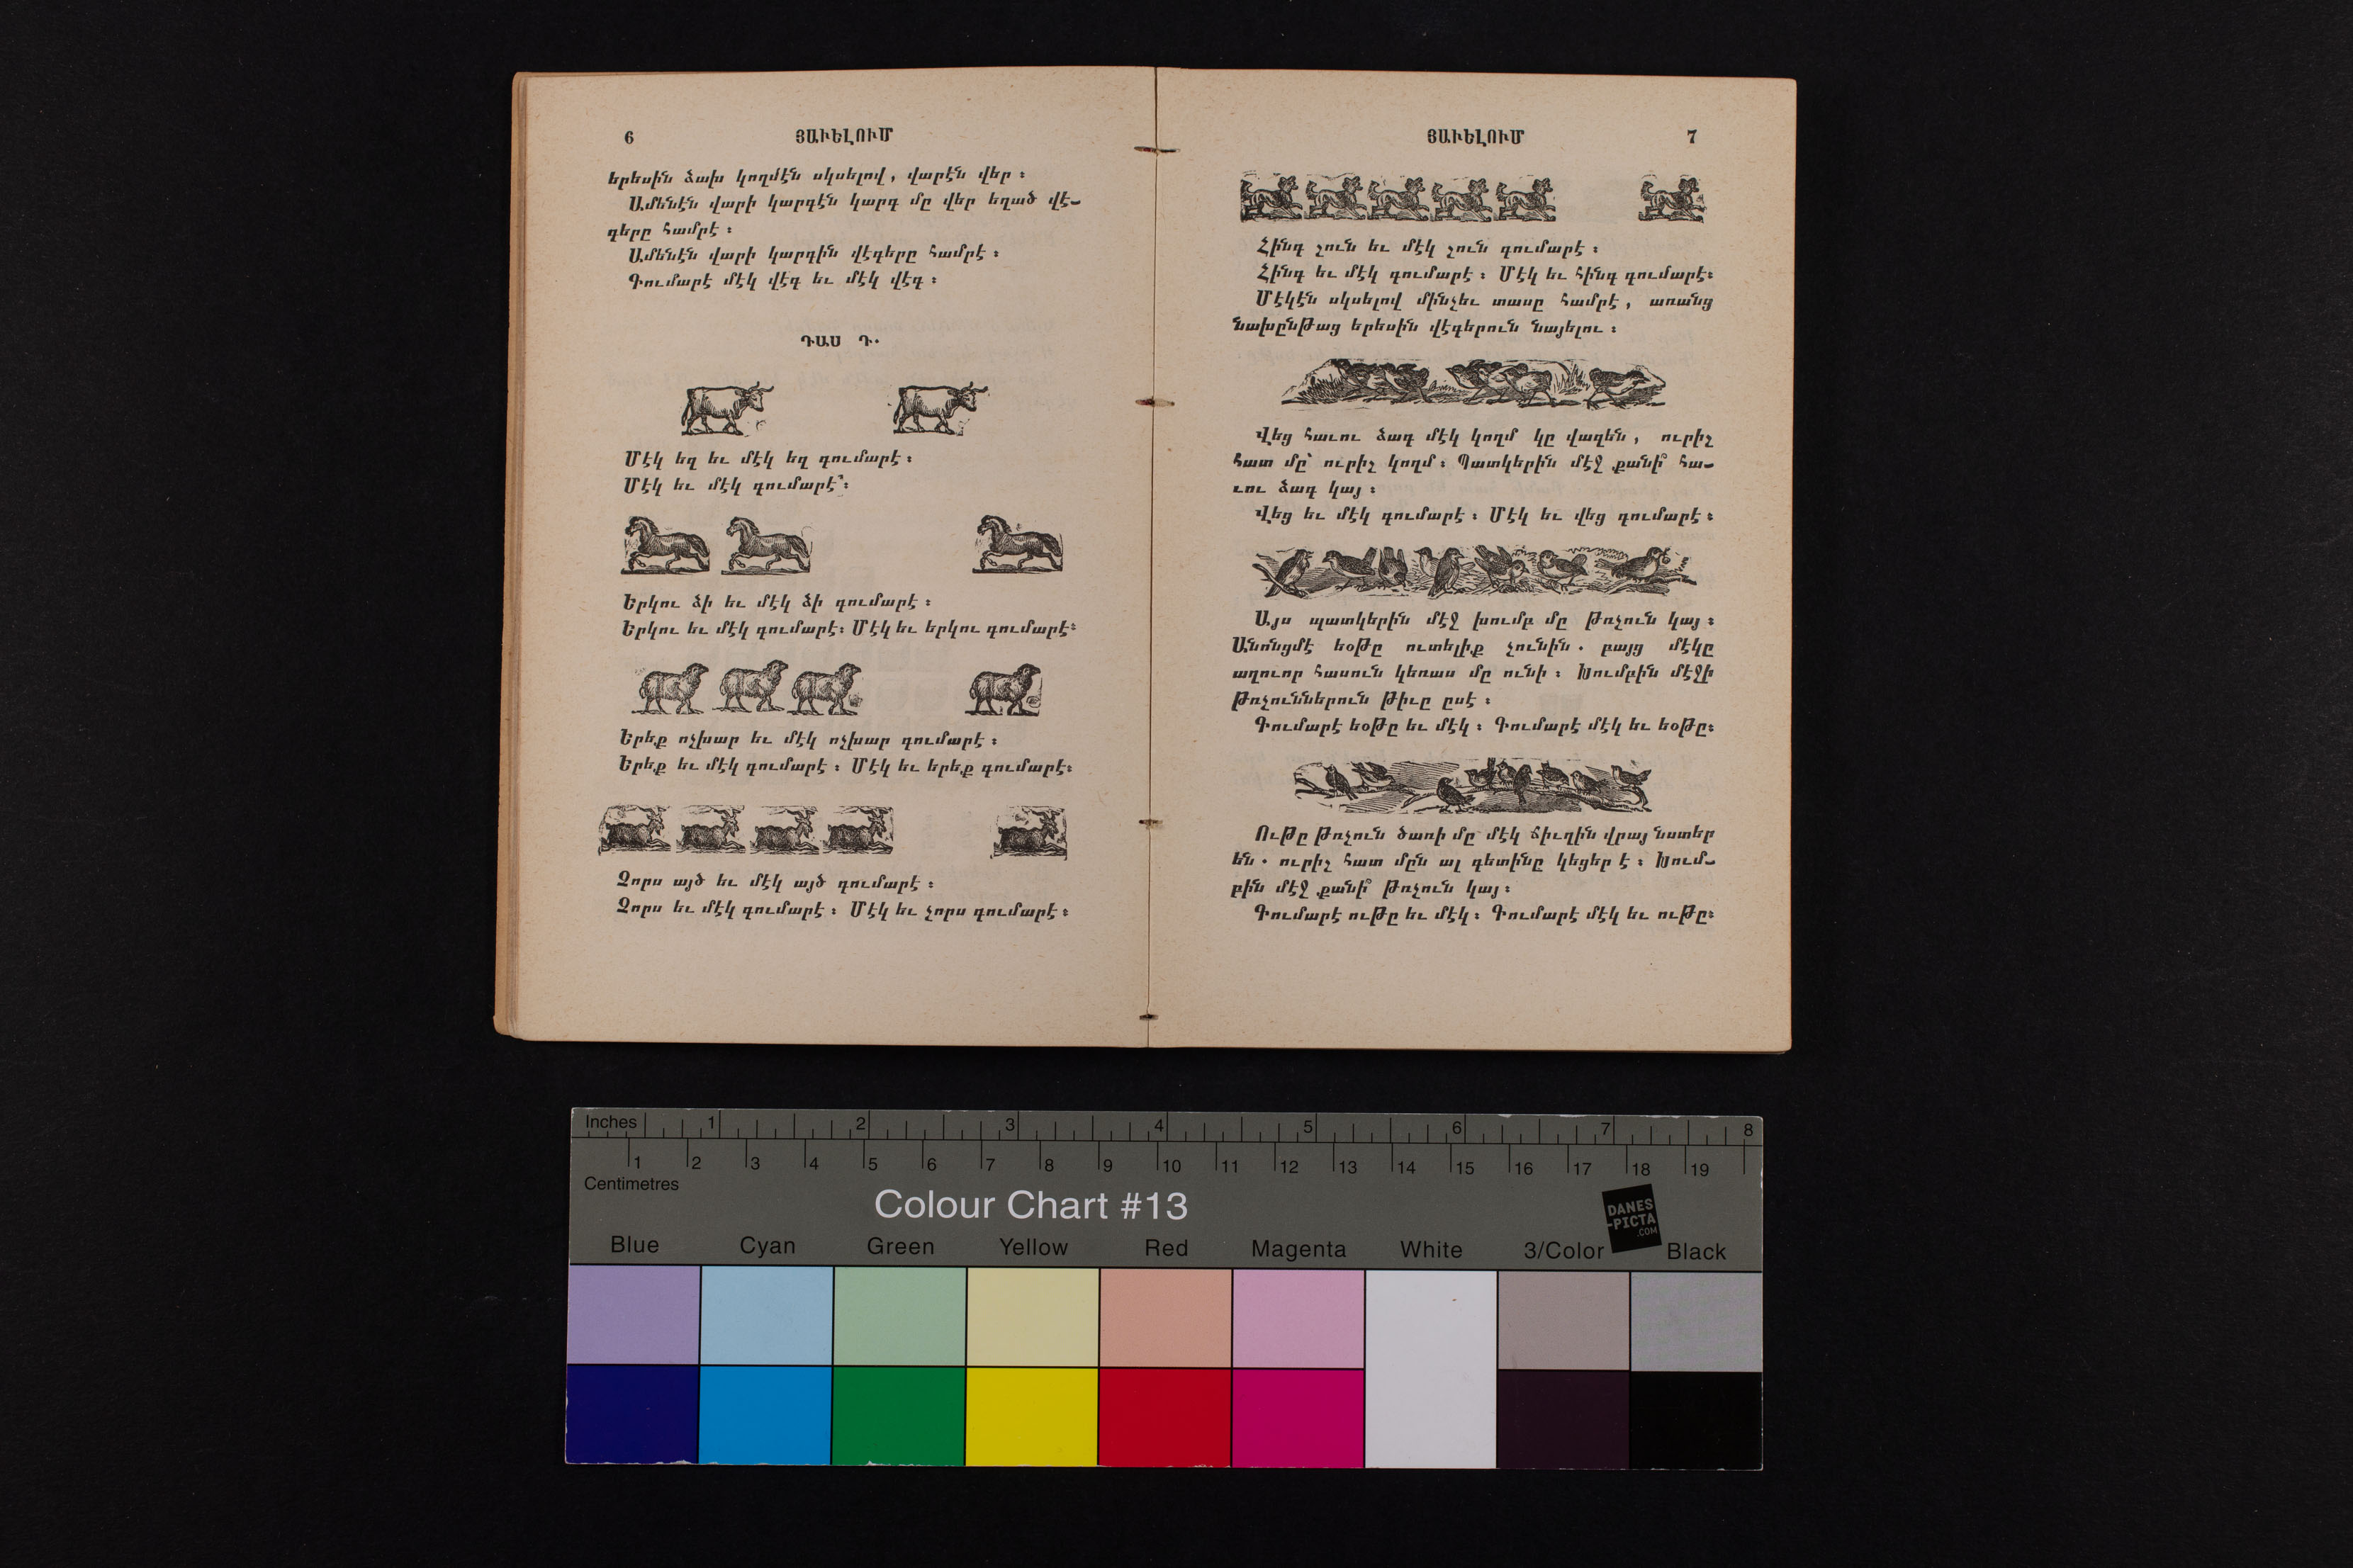 6 ՅԱՒԵԼՈՒՄ
երեսին ձախ կողմէն սկսելով, վարէն վեր։
Ամենէն վարի կարդէն կարգ մը վեր եղած վէ-
գերը համրէ։
Ամենէն վարի կարգին վէգերը համրէ։
Գումարէ մէկ վէգ եւ մէկ վէգ։
ԴԱՍ Դ.
Մէկ եզ եւ մէկ եզ գումարէ։
Մէկ եւ մէկ գումարէ՛։
Երկու ձի եւ մէկ ձի գումարէ։
Երկու եւ մէկ գումարէ։ Մէկ եւ երկու գումարէ։
Երեք ոչխար եւ մէկ ոչխար գումարէ։
Երեք եւ մէկ գումարէ։ Մէկ եւ երեք գումարէ։
Չորս այծ եւ մէկ այծ գումարէ։
Չորս եւ մէկ գումարէ։ Մէկ եւ չորս գումարէ։
ՅԱՒԵԼՈՒՄ 7
Հինգ շուն եւ մէկ շուն գումարէ։
Հինգ եւ մէկ գումարէ։ Մէկ եւ հինգ գումարէ։
Մէկէն սկսելով մինչեւ տասը համրէ, առանց
նախընթաց երեսին վէգերուն նայելու։
Վեց հաւու ձագ մէկ կողմ կը վազեն, ուրիշ
հատ մը՝ ուրիշ կողմ։ Պատկերին մէջ քանի՞ հա-
ւու ձագ կայ։
Վեց եւ մէկ գումարէ։ Մէկ եւ վեց գումարէ։
Այս պատկերին մէջ խումբ մը թռչուն կայ։
Անոնցմէ եօթը ուտելիք չունին. բայց մէկը
աղուոր հասուն կեռաս մը ունի։ Խումբին մէջի
թռչուններուն թիւը ըսէ։
Գումարէ եօթը եւ մէկ։ Գումարէ մէկ եւ եօթը։
Ութը թռչուն ծառի մը մէկ ճիւղին վրայ նստեր
են. ուրիշ հատ մըն ալ գետինը կեցեր է։ Խում-
բին մէջ քանի՞ թռչուն կայ։
Գումարէ ութը եւ մէկ։ Գումարէ մէկ եւ ութը։
Inches 1 2 3 4 5 6 7 8
1 2 3 4 5 6 7 8 9 10 11 12 13 14 15 16 17 18 19
Centimetres
Colour Chart #13
DANES
-PICTA
.COM
Blue Cyan Green Yellow Red Magenta White 3/Color Black